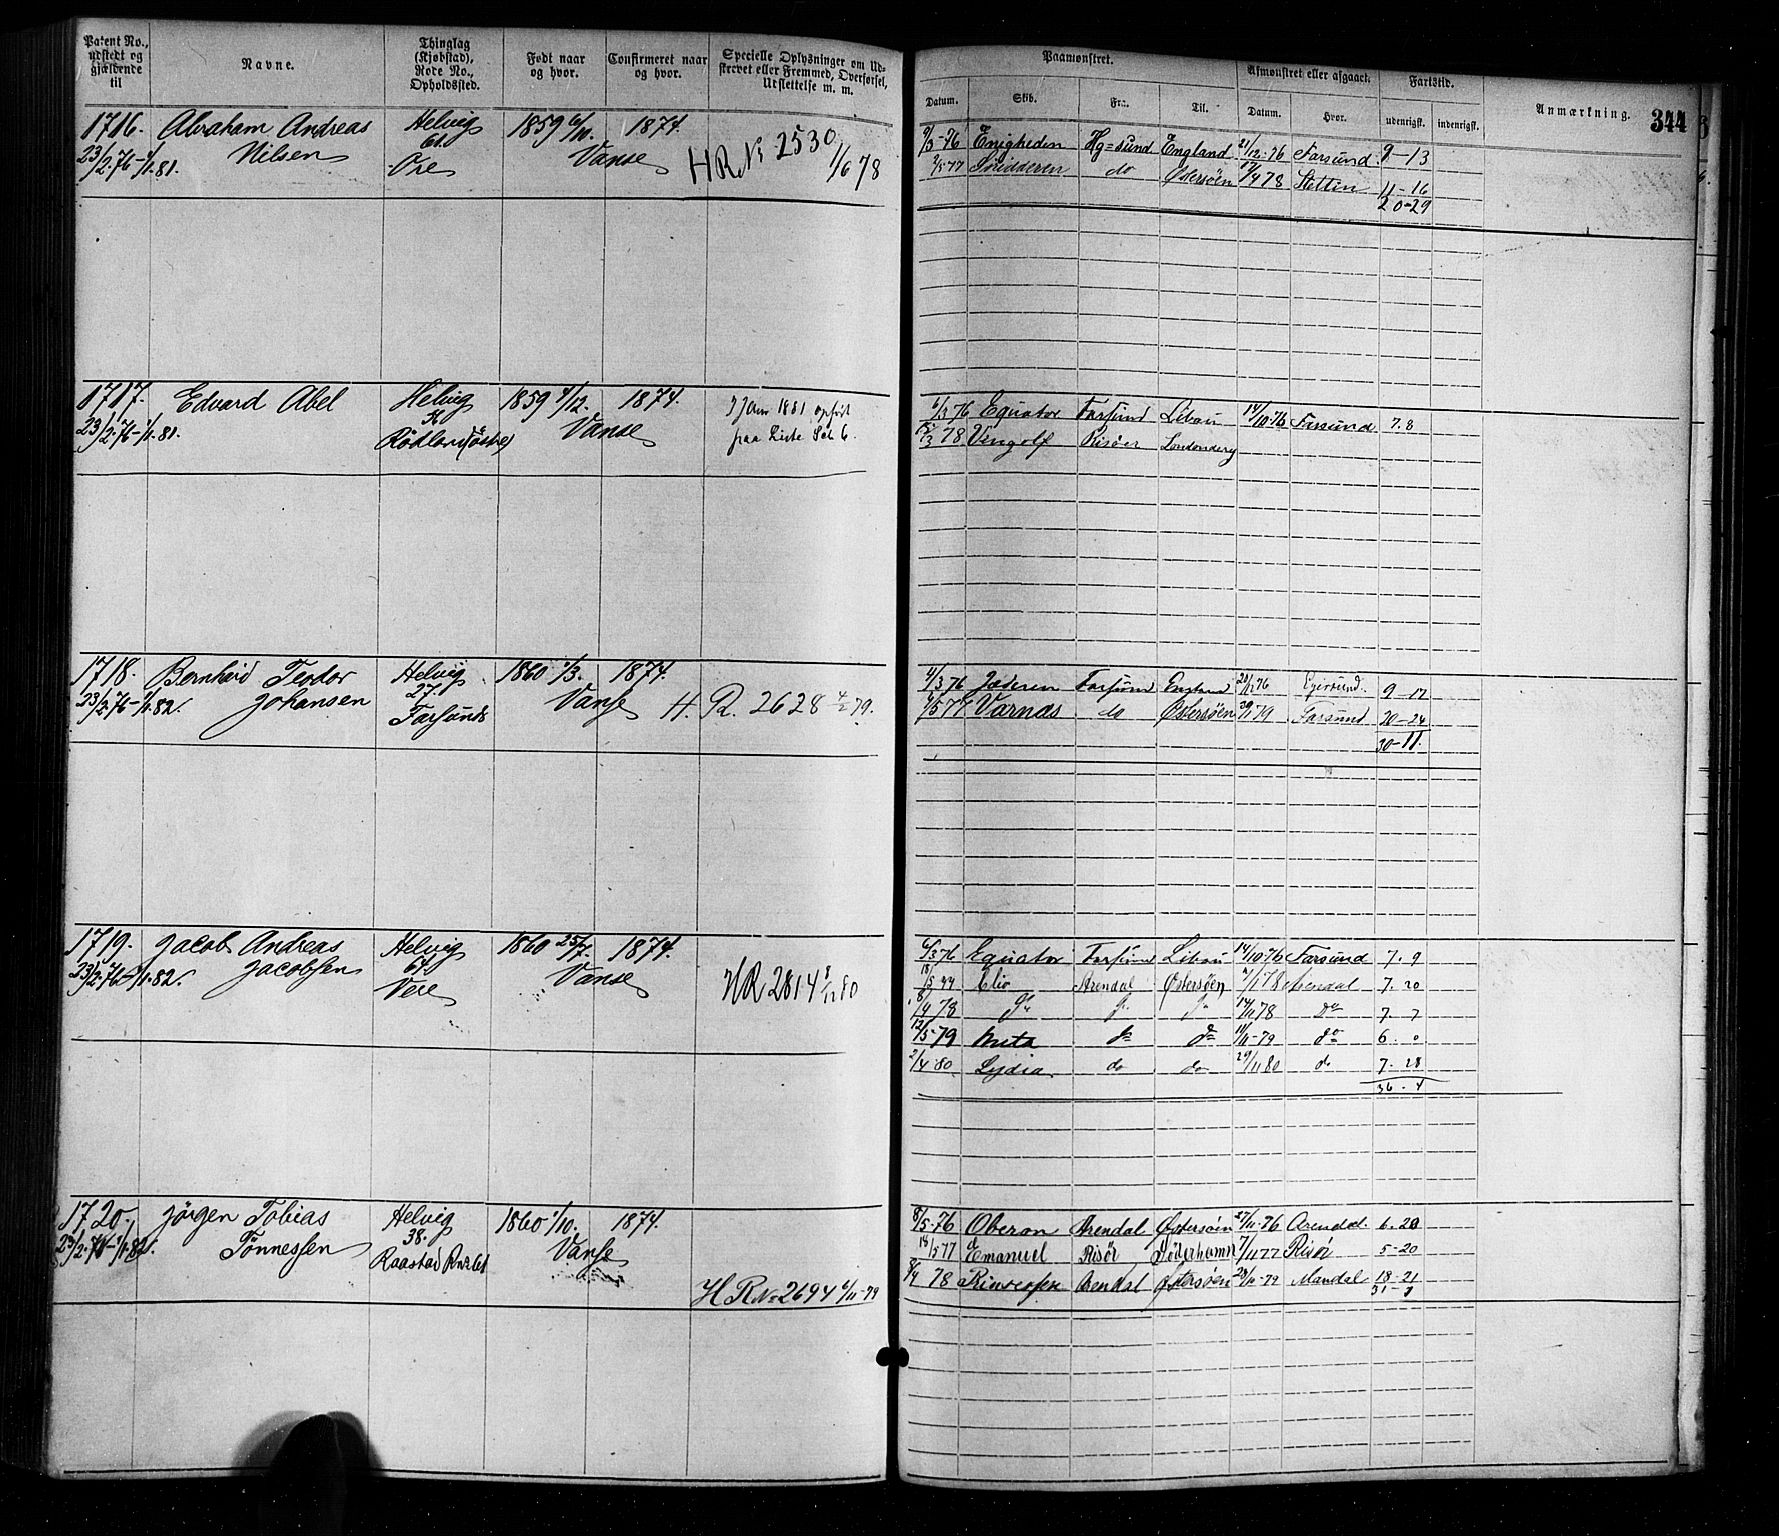 Patent No., udstedt og gjældende til
Navne.
Thinglag (Kjøbstad), Rode No., Opholdssted.
Født naar og hvor.
Confirmeret naar og hvor.
Specielle Oplysninger om Udskrevet eller Fremmed, Overførsel, Udslettelse m. m.
Paamønstret.
Datum.
Skib.
Fra.
Til.
Afmønstret eller afgaaet.
Datum.
Hvor.
Fartstid.
udenrigst.
indenrigst.
Anmærkning.
344
1716. Abraham Andreas Helvig 1859 6/10. 1874.
23/2.76-1/1.81. Nilsen 61. Vanse HR No 2530 1/6 78
Ore
9/3-76 Enigheden Hg=sund England 21/12-76 Farsund 9-13
2/5 77 do Østersøen 17/4 78 Stettin 11-16
20-29
1717. Edvard Abel Helvig 1859 4/12. 1874. 7 Jan 1881 opført
23/2.76-1/1.81. Vanse paa Liste
6/3 76 Equator Farsund Libau 14/10.76 Farsund 7.8
78 Vingolf Risøer Londonderry
1718. Bernhard Teodor Helvig 1860 1/3. 1874.
23/2.76-1/1.82. Johansen 27. Vanse H. R. 2628 4/2 79.
Farsunds
4/3 76 Jæderen Farsund England 76 Egersund. 9-17
6/5 77 Varnæs do Østersøen 79 Farsund 20-24
30-11.
1719. Jacob Andreas Helvig 1860 25/7. 1874.
23/2.76-1/1.82. Jacobsen 64. Vanse HR 2814 80
Vere
6/3 76 Equator Farsund Libau 14/10-76 Farsund 7.9
18/5 77 Clio Arendal Østersøen 78 Arendal 7.20
78 14/11 78 Do 7.7
12/5-79 Meta do do 11/11-79 do 6.0
2/4-80 Lydia do do 29/11 80 do 7.28
36-4
1720. Jørgen Tobias Helvig 1860 1/10. 1874.
23/2.76-1/1.82. Tönnessen 38. Vanse
Raastad
H R No 2694 6/11-79
8/5-76 Oberon Arendal Østersøen 27/11-76 Arendal. 6.20
18/5 77 Emanuel Risör Söderhamn 7/11 77 Risör 5-20
8/4 78 Arendal Østersøen 29/11-79 Mandal 18-21
31-1